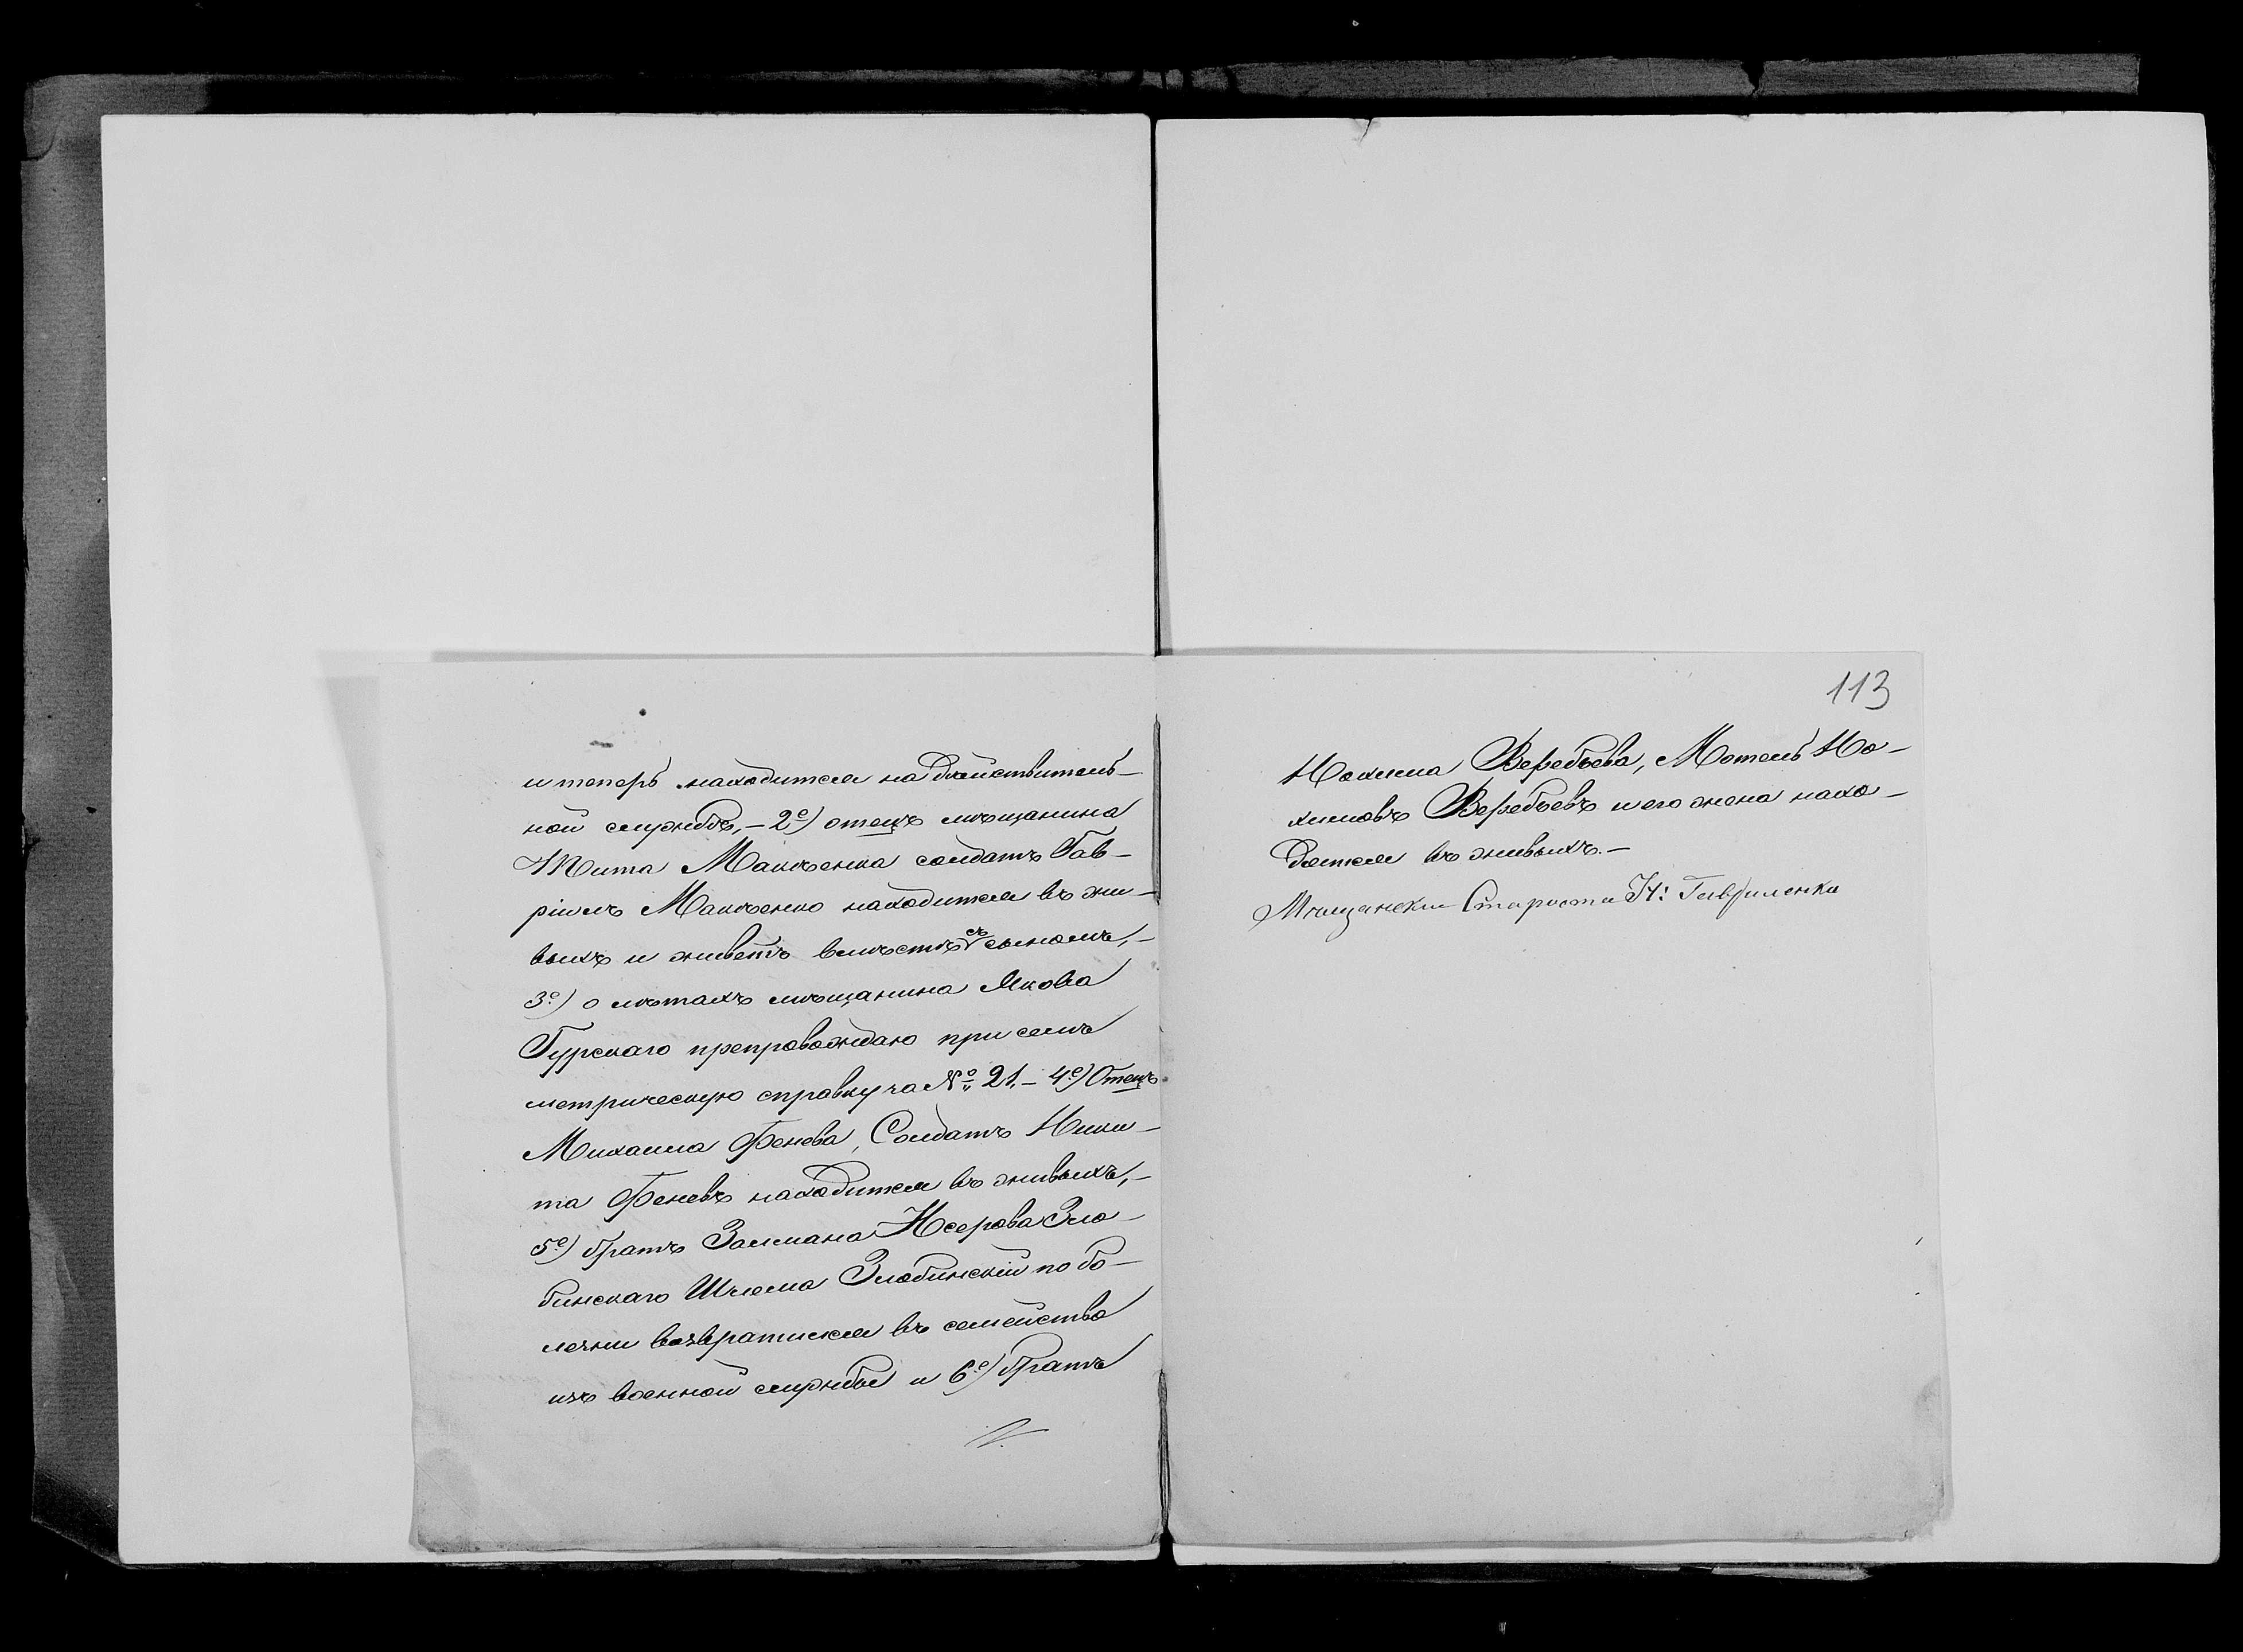 и теперь находится на дѣйствитель-
ной службѣ,- 2е) отецъ мѣщанина
Тита Макѣенка солдатъ Гав-
ріилъ Макѣенко находится въ жи-
выхъ и живетъ вмѣстѣ съ сыномъ,-
3е) о лѣтахъ мѣщанина Якова
Гурскаго препровождаю при семъ
метрическую справку за № 21.- 4е) Отецъ
Михаила Фенева, Солдатъ Ники-
та Феневъ находится въ живыхъ,-
5е) братъ Залмана Юсерова Зло-
бинскаго Шлема Злобинскій по бо-
лезни возвратился въ семейство
изъ военной службы и 6е) братъ
113
Нохима Веребьева, Мотель Но-
химовъ Веребьевъ и его жена нахо-
дятся въ живыхъ.-
Мѣщанскій Староста Н: Гавриленко